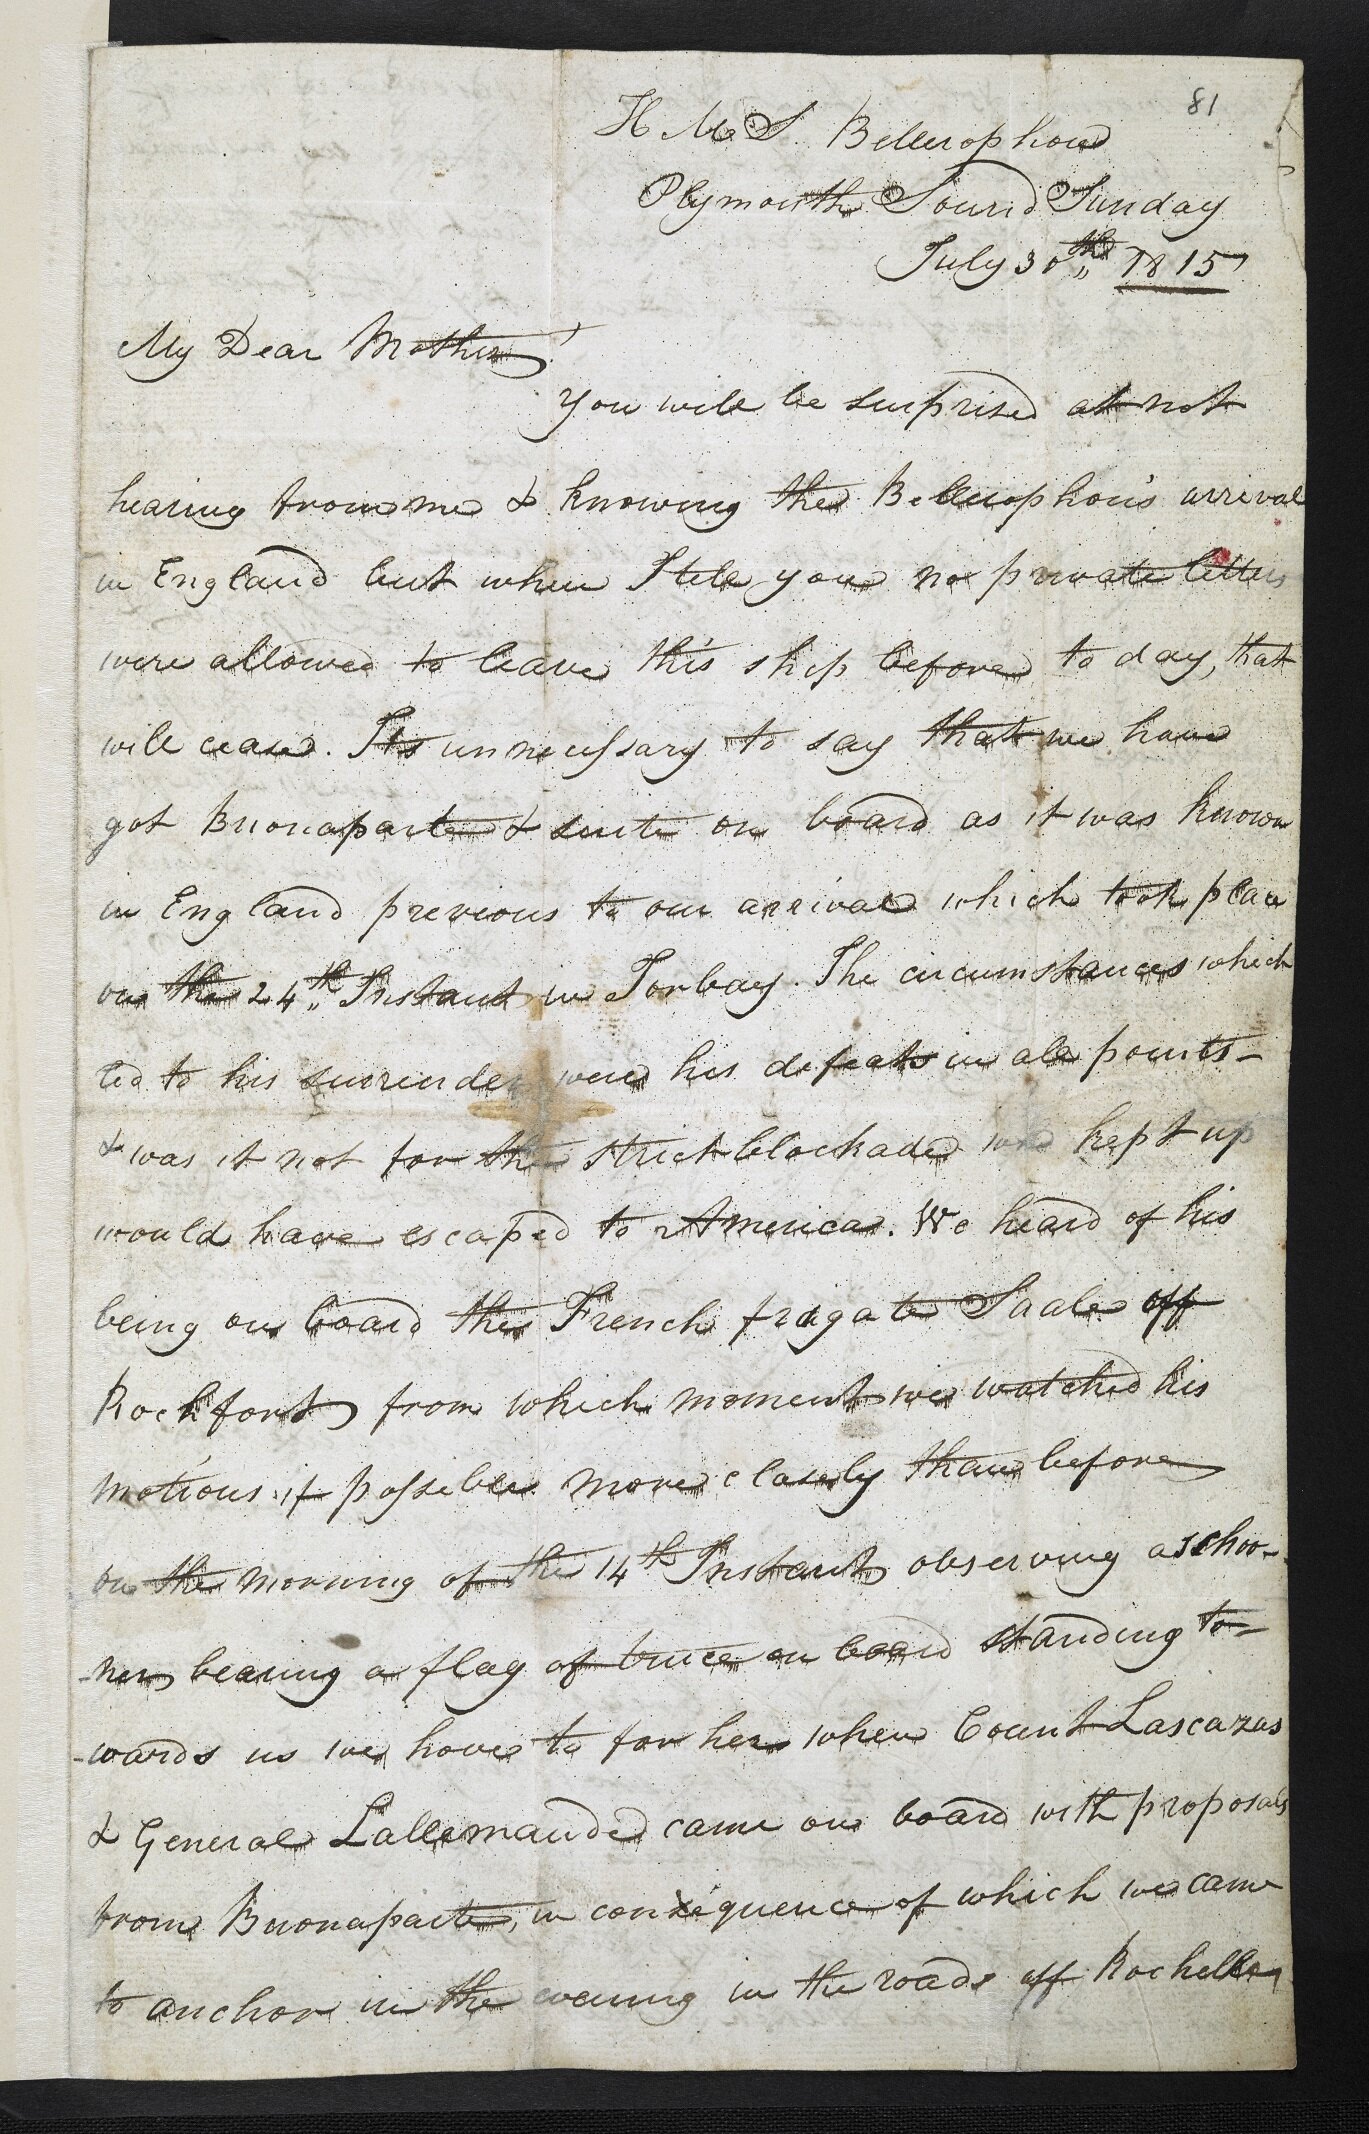 81
H M S. Bellerophon
Plymouth Sound Sunday
July 30th 1815
My Dear Mother!
You will be surprised at not
hearing from me & knowing the Bellerophon's arrival
in England but when I tell you no private letters
were allowed to leave this ship before to day, that
will cease. Its unnecessary to say that we have
got Buonaparte & suite on board as it was known
in England previous to our arrival which took place
on the 24th Instant in Torbay. The circumstances which
led to his surrender were his defeats in all points -
& was it not for the strict blockade we kept up
would have escaped to America. We heard of his
being on board the French frigate Saale off
Rochfort from which moment we watched his
motions if possible more closely than before
on the morning of the 14th Instant observing a schoo-
-ner bearing a flag of truce on board standing to-
-wards us we hove to for her when Count Lascazas
& General Lallemande came on board with proposals
from Buonaparte, in consequence of which we came
to anchor in the evening in the roads off Rochelle